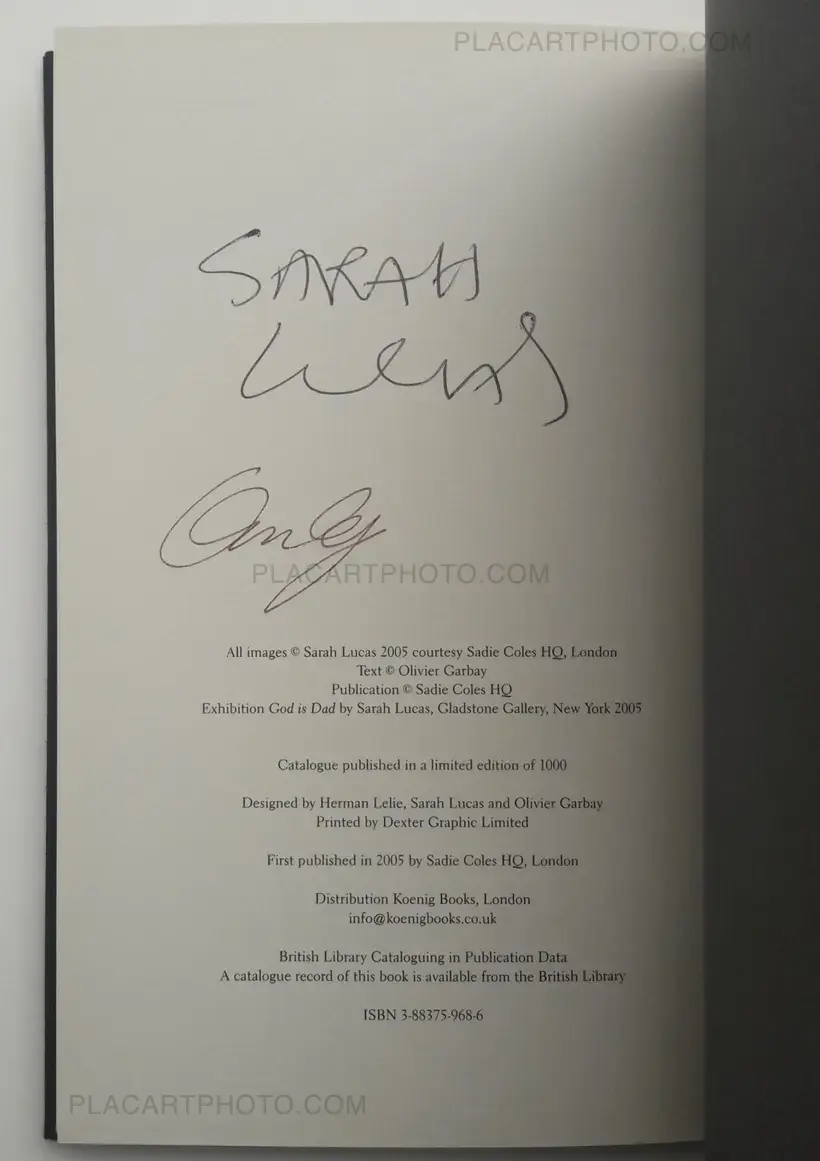 PLACARTPHOTO.COM
SARAH
Lucas
PLACARTPHOTO.COM
All images © Sarah Lucas 2005 courtesy Sadie Coles HQ, London
Text © Olivier Garbay
Publication © Sadie Coles HQ
Exhibition God is Dad by Sarah Lucas, Gladstone Gallery, New York 2005
Catalogue published in a limited edition of 1000
Designed by Herman Lelie, Sarah Lucas and Olivier Garbay
Printed by Dexter Graphic Limited
First published in 2005 by Sadie Coles HQ, London
Distribution Koenig Books, London
info@koenigbooks.co.uk
British Library Cataloguing in Publication Data
A catalogue record of this book is available from the British Library
ISBN 3-88375-968-6
PLACARTPHOTO.COM